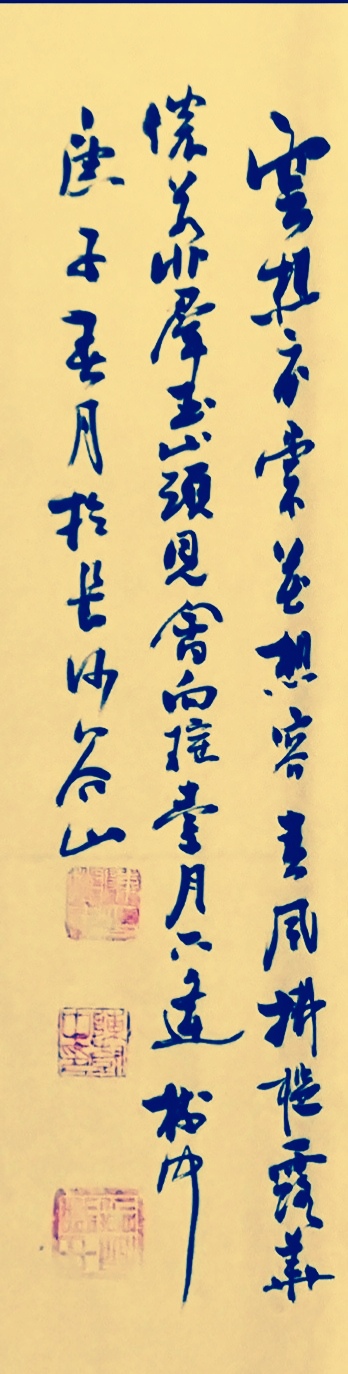 雲想衣裳花想容春風拂檻露華
濃若非羣玉山頭見會向瑤臺月下逢 树中
庚子春月於長沙谷山